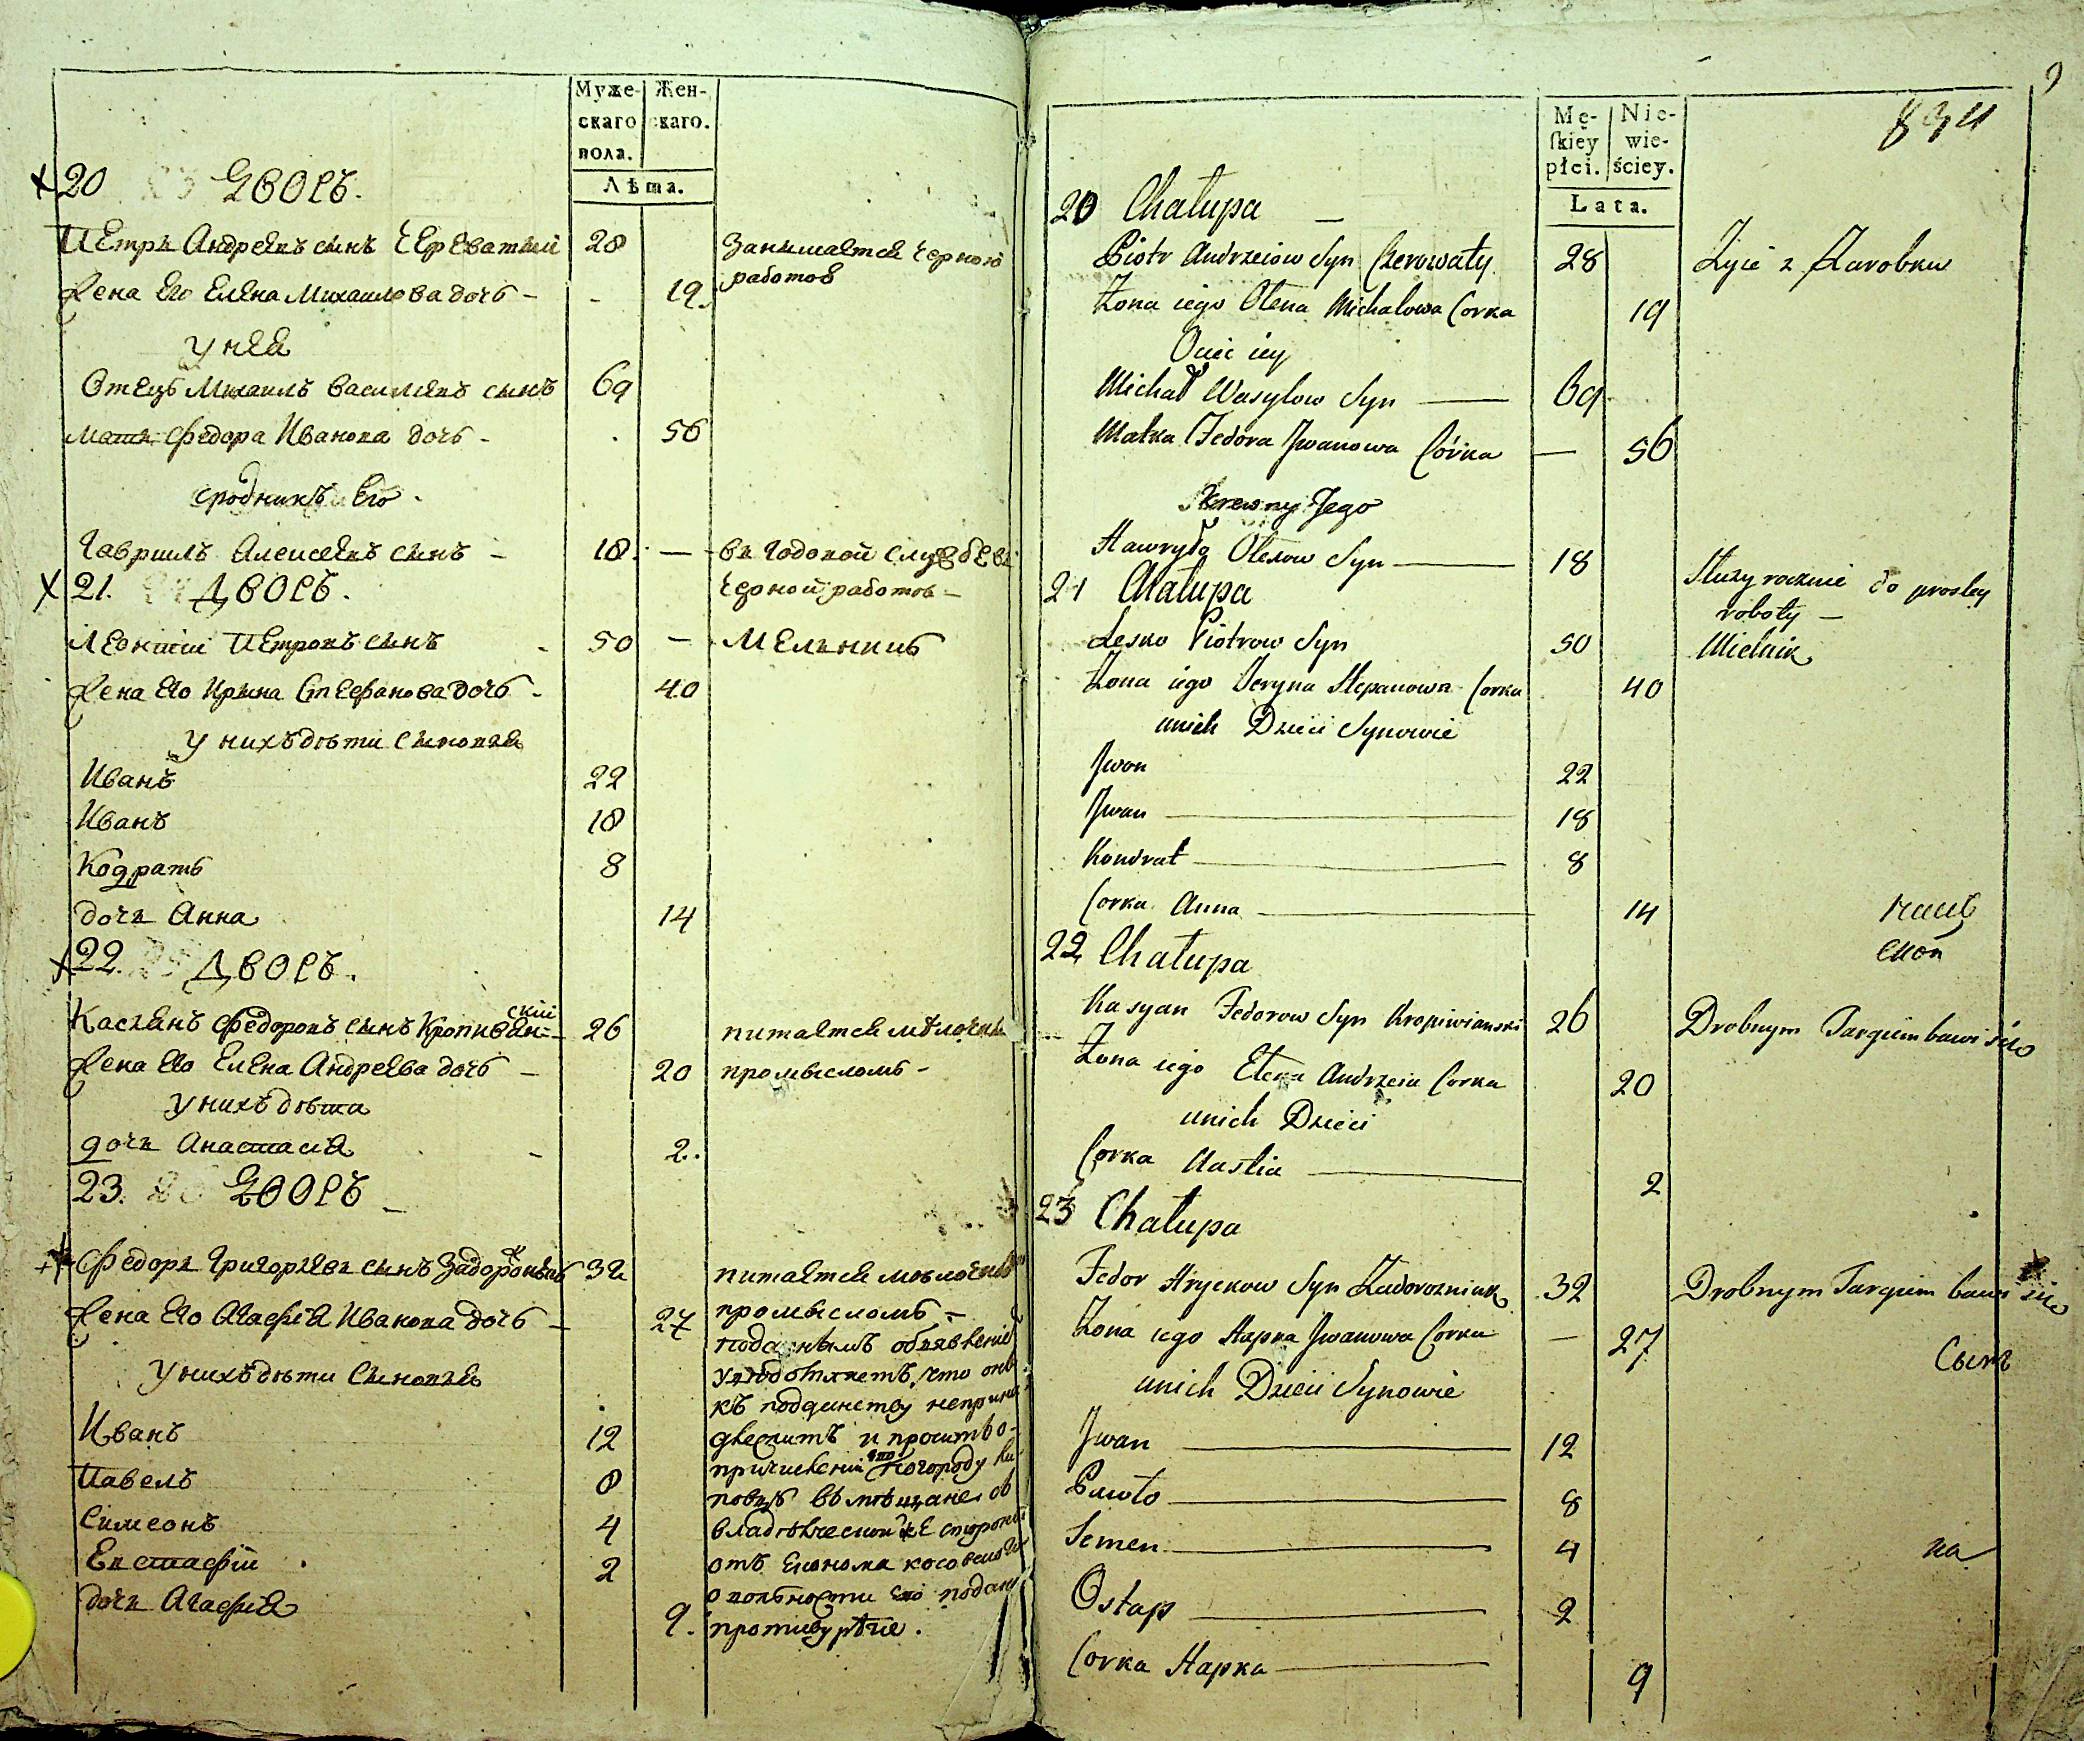 Муже-
скаго
пола.
Жен-
скаго.
Лѣта.
20 Дворъ.
Петръ Андреевъ сынъ Череватый 28 Занимается черною
работою
Жена Его Елена Михаилова дочь - 19.
у нея
Отецъ Михаилъ Васильевъ сынъ 69
мать Федора Иванова дочь - 56
сродникъ Его.
Гаврiилъ Алексеевъ сынъ - 18. — в годовой службе в
черной работе -
21. Дворъ.
Леонтiй Петровъ сынъ 50 — Мельникъ
Жена Его Ирина Стефанова дочь - 40
у нихъ дѣти сыновья
Иванъ 22
Иванъ 18
Кодратъ 8
дочь Анна 14
22. Дворъ.
Касьянъ Федоровъ сынъ Кропивян-
скiй 26 питается мѣлочнымъ
Жена Его Елена Андреева дочь - 20 промысломъ -
у нихъ дѣти
дочь Анастасiя - 2.
23. Дворъ -
Федоръ Григорьевъ сынъ Задорожнякъ 32 питается мѣлочнымъ
Жена Его Агафiя Иванова дочь - 27 промысломъ -
объявленiе
у нихъ дѣти сыновья что онъ
къ
Иванъ 12 и
городу
Павелъ 8
Симеонъ 4
отъ
Евстафiй 2
дочь Агафiя 9. противуречие.
Mę-
ſkiey
płci.
Nie-
wie-
ściey.
Lata.
20 Chałupa —
Piotr Andrzeiow Syn Czerowaty 28 Zyie z Zarobku
Zona iego Olena Michałowa Corka 19
Ociec iey
Michał Wasylow Syn — 69
Matka Fedora Jwanowa Córka — 56
Krewny Jego
Hawryło Olexow Syn — 18 Służy rocznie do prostey
roboty —
21 Chałupa
Lesko Piotrow Syn 50 Mielnik
Zona iego Jeryna Stepanowa Corka 40
unich Dzieci Synowie
Jwan 22
Jwan — 18
Kondrat — 8
Corka Anna — 14
22 Chałupa
Kasyan Fedorow Syn Kropiwianski 26 Drobnym Targiem bawi sie
Zona iego Elena Andrzeia Corka 20
unich Dzieci
Corka Nastia — 2
23 Chałupa
Fedor Hryckow Syn Zadorozniuk 32 Drobnym Targiem bawi sie
Zona iego Hapka Jwanowa Corka — 27
Сынъ
unich Dzieci Synowie
Jwan — 12
Pawło — 8
Semen — 4
на
Ostap — 2
Corka Hapka — 9